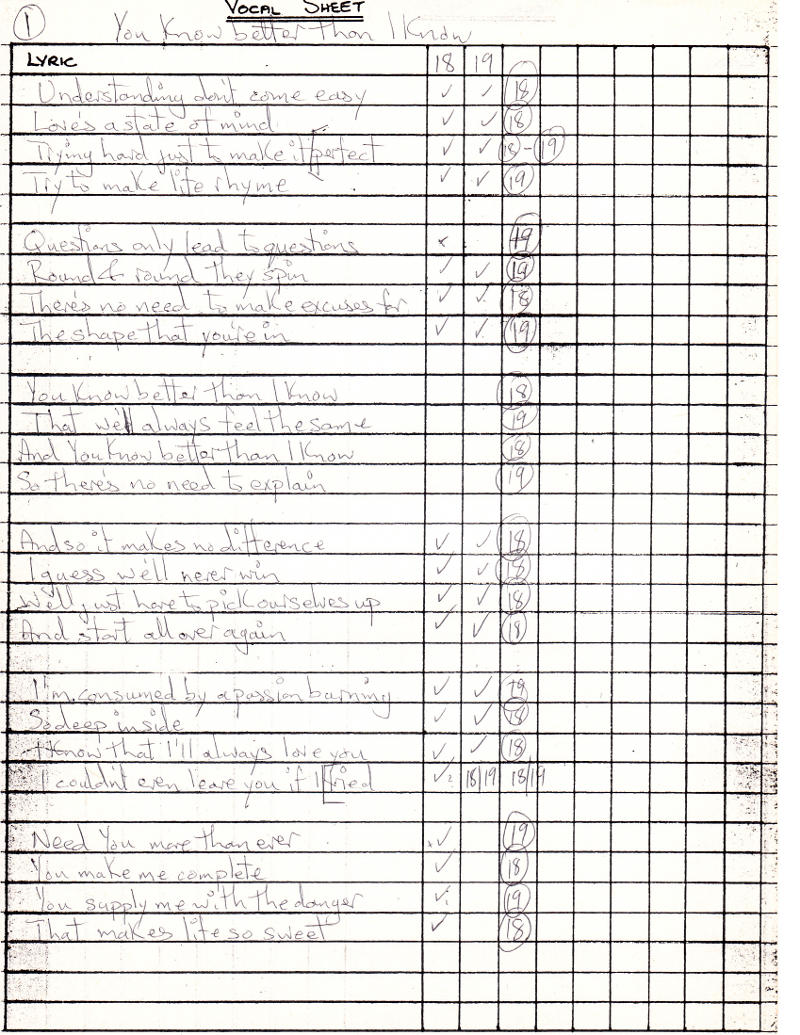 VOCAL SHEET
1 You Know better than I Know
LYRIC 18 19
Understanding don't come easy ✓ ✓ 18
Love's a state of mind ✓ ✓ 18
Trying hard just to make it [perfect ✓ ✓ 18-19
Try to make life rhyme ✓ ✓ 19
Questions only lead to questions x 19
Round & round they spin ✓ ✓ 19
There's no need to make excuses for ✓ ✓ 18
The shape that you're in ✓ ✓ 19
You Know better than I know 18
That we'll always feel the same 19
And You Know better than I Know 18
So there's no need to explain 19
And so it makes no difference ✓ ✓ 18
I guess we'll never win ✓ ✓ 18
We'll just have to pick ourselves up ✓ ✓ 18
And start all over again ✓ ✓ 18
I'm consumed by a passion burning ✓ ✓ 19
So deep inside ✓ ✓ 18
I Know that I'll always love you ✓ ✓ 18
I couldn't even leave you if I [tried ✓ 18/19 18/19
Need You more than ever ✓ 19
You make me complete ✓ 18
You supply me with the danger ✓ 19
That makes life so sweet ✓ 18